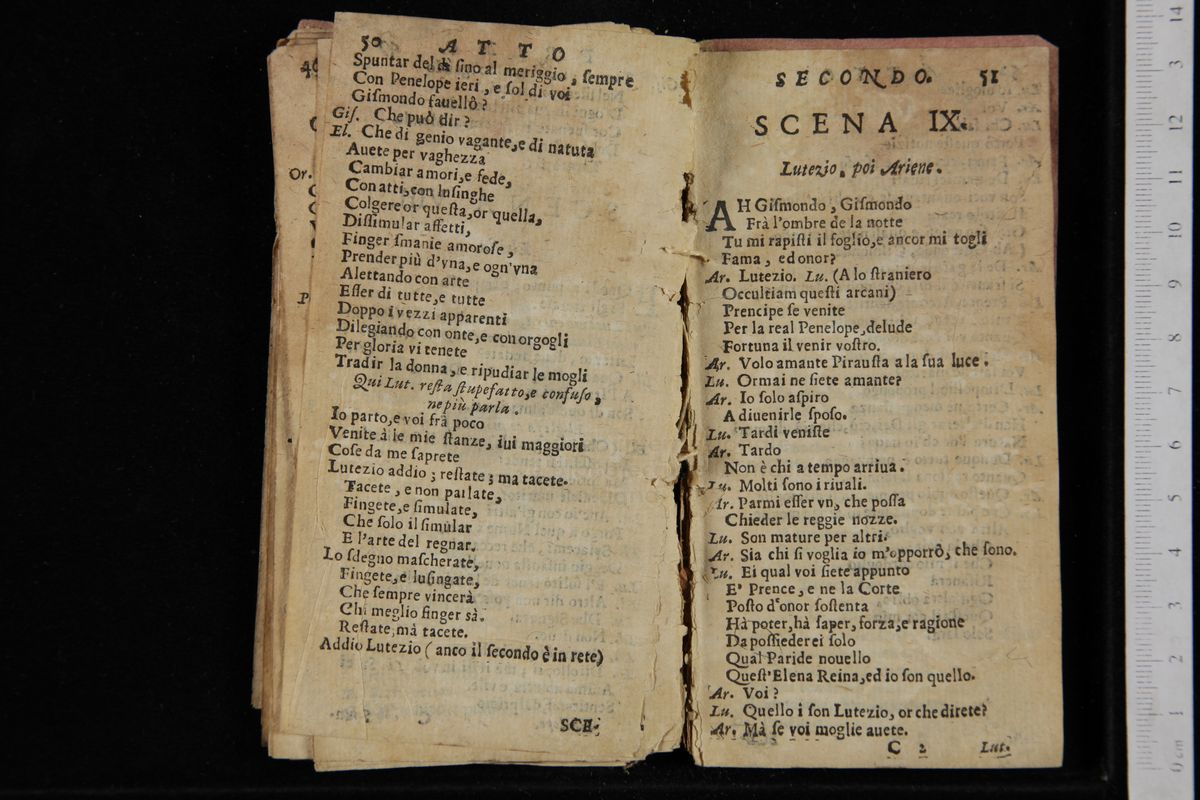 50 ATTO
Spuntar del dì ſino al meriggio, ſempre
Con Penelope ieri, e ſol di voi
Giſmondo fauellò?
Giſ. Che può dir?
El. Che di genio vagante, e di natuta
Auete per vaghezza
Cambiar amori, e fede,
Con atti, con luſinghe
Colgere or queſta, or quella,
Diſſimular affetti,
Finger ſmanie amoroſe,
Prender più d'vna, e ogn'vna
Alettando con arte
Eſſer di tutte, e tutte
Doppo i vezzi apparenti
Dilegiando con onte, e con orgogli
Per gloria vi tenete
Tradir la donna, e ripudiar le mogli
Qui Lut. reſta ſtupefatto, e confuſo,
ne più parla.
Io parto, e voi frà poco
Venite à le mie ſtanze, iui maggiori
Coſe da me ſaprete
Lutezio addio; reſtate; ma tacete.
Tacete, e non parlate,
Fingete, e ſimulate,
Che ſolo il ſimular
E l'arte del regnar.
Lo ſdegno maſcherate,
Fingete, e luſingate,
Che ſempre vincerà
Chi meglio finger sà.
Reſtate, mà tacete.
Addio Lutezio (anco il ſecondo è in rete)
SCE-
SECONDO. 51
SCENA IX.
Lutezio, poi Ariene.
AH Giſmondo, Giſmondo
Frà l'ombre de la notte
Tu mi rapiſti il foglio, e ancor mi togli
Fama, ed onor?
Ar. Lutezio. Lu. (A lo ſtraniero
Occultiam queſti arcani)
Prencipe ſe venite
Per la real Penelope, delude
Fortuna il venir voſtro.
Ar. Volo amante Pirauſta a la ſua luce.
Lu. Ormai ne ſiete amante?
Ar. Io ſolo aſpiro
A diuenirle ſpoſo.
Lu. Tardi veniſte
Ar. Tardo
Non è chi a tempo arriua.
Lu. Molti ſono i riuali.
Ar. Parmi eſſer vn, che poſſa
Chieder le reggie nozze.
Lu. Son mature per altri.
Ar. Sia chi ſi voglia io m'opporrò, che ſono.
Lu. Ei qual voi ſiete appunto
E' Prence, e ne la Corte
Poſto d'onor ſoſtenta
Hà poter, hà ſaper, forza, e ragione
Da poſſieder ei ſolo
Qual Paride nouello
Queſt'Elena Reina, ed io ſon quello.
Ar. Voi?
Lu. Quello i ſon Lutezio, or che direte?
Ar. Mà ſe voi moglie auete.
C 2 Lut.